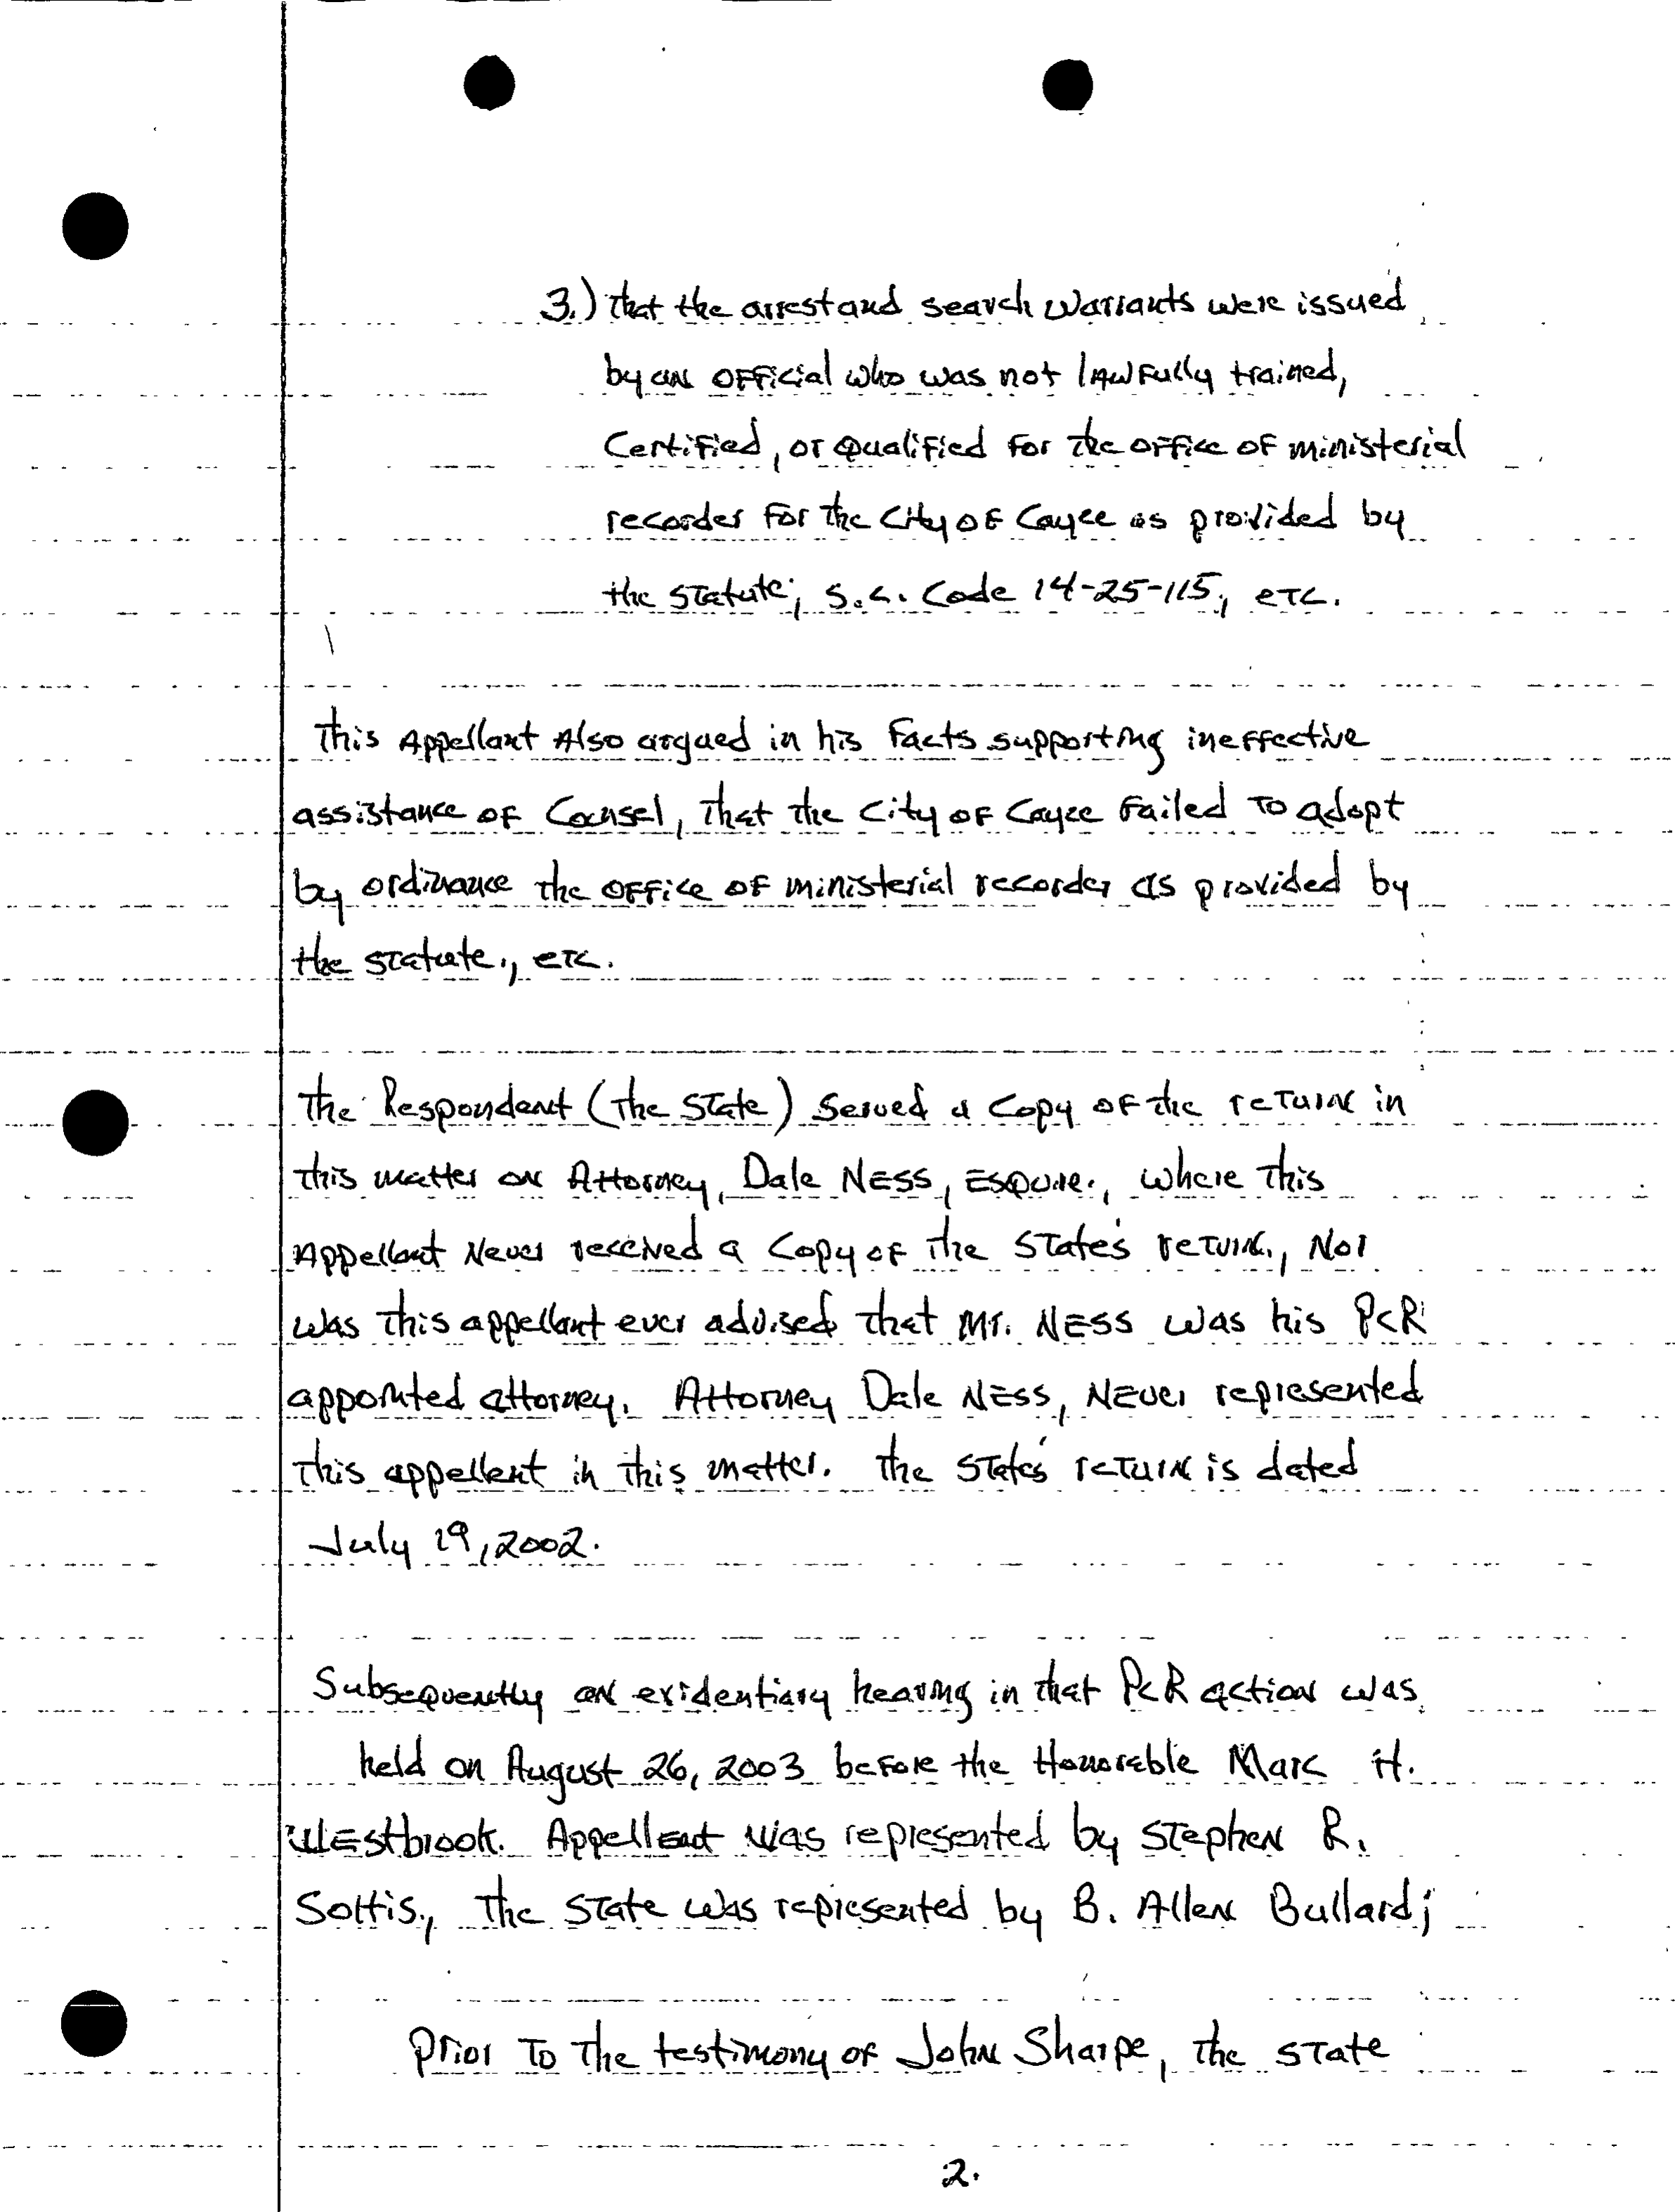 3.) That the arrest and search warrants were issued
by an official who was not lawfully trained,
Certified, or qualified for the office of ministerial
recorder for the City of Cayce as provided by
the statute; S.C. Code 14-25-115., etc.
This Appellant Also argued in his Facts supporting ineffective
assistance of Counsel, That the City of Cayce Failed To adopt
by ordinance the office of ministerial recorder as provided by
the statute., etc.
The Respondent (The State) Served a Copy of the return in
this matter on Attorney, Dale Ness, Esquire., Where This
Appellant Never received a Copy of the State's return., Nor
was this appellant ever advised that Mr. Ness was his PCR
appointed attorney. Attorney Dale Ness, Never represented
this appellent in this matter. The State's return is dated
July 19, 2002.
Subsequently an evidentiary hearing in that PCR action was
held on August 26, 2003 before the Honorable Marc H.
Westbrook. Appellent was represented by Stephen R.
Soltis., The State was represented by B. Allen Bullard;
Prior To The testimony of John Sharpe, the State
2.